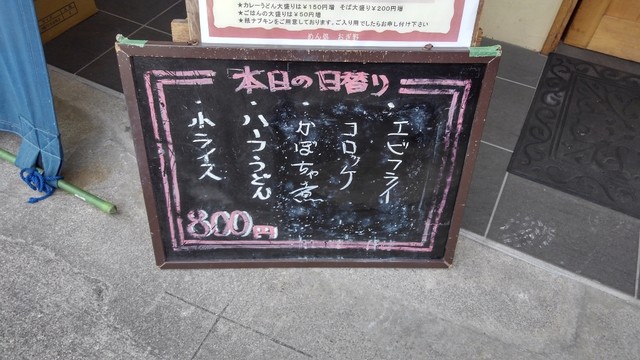 ★カレーうどん大盛りは￥150円増 そば大盛り￥200円増
★ごはんの大盛りは￥50円増
★紙ナプキンをご用意しております。ご入り用でしたらお申し付け下さい
本日の日替り
・エビフライ
コロッケ
・かぼちゃ煮
・ハーフうどん
・小ライス
800円